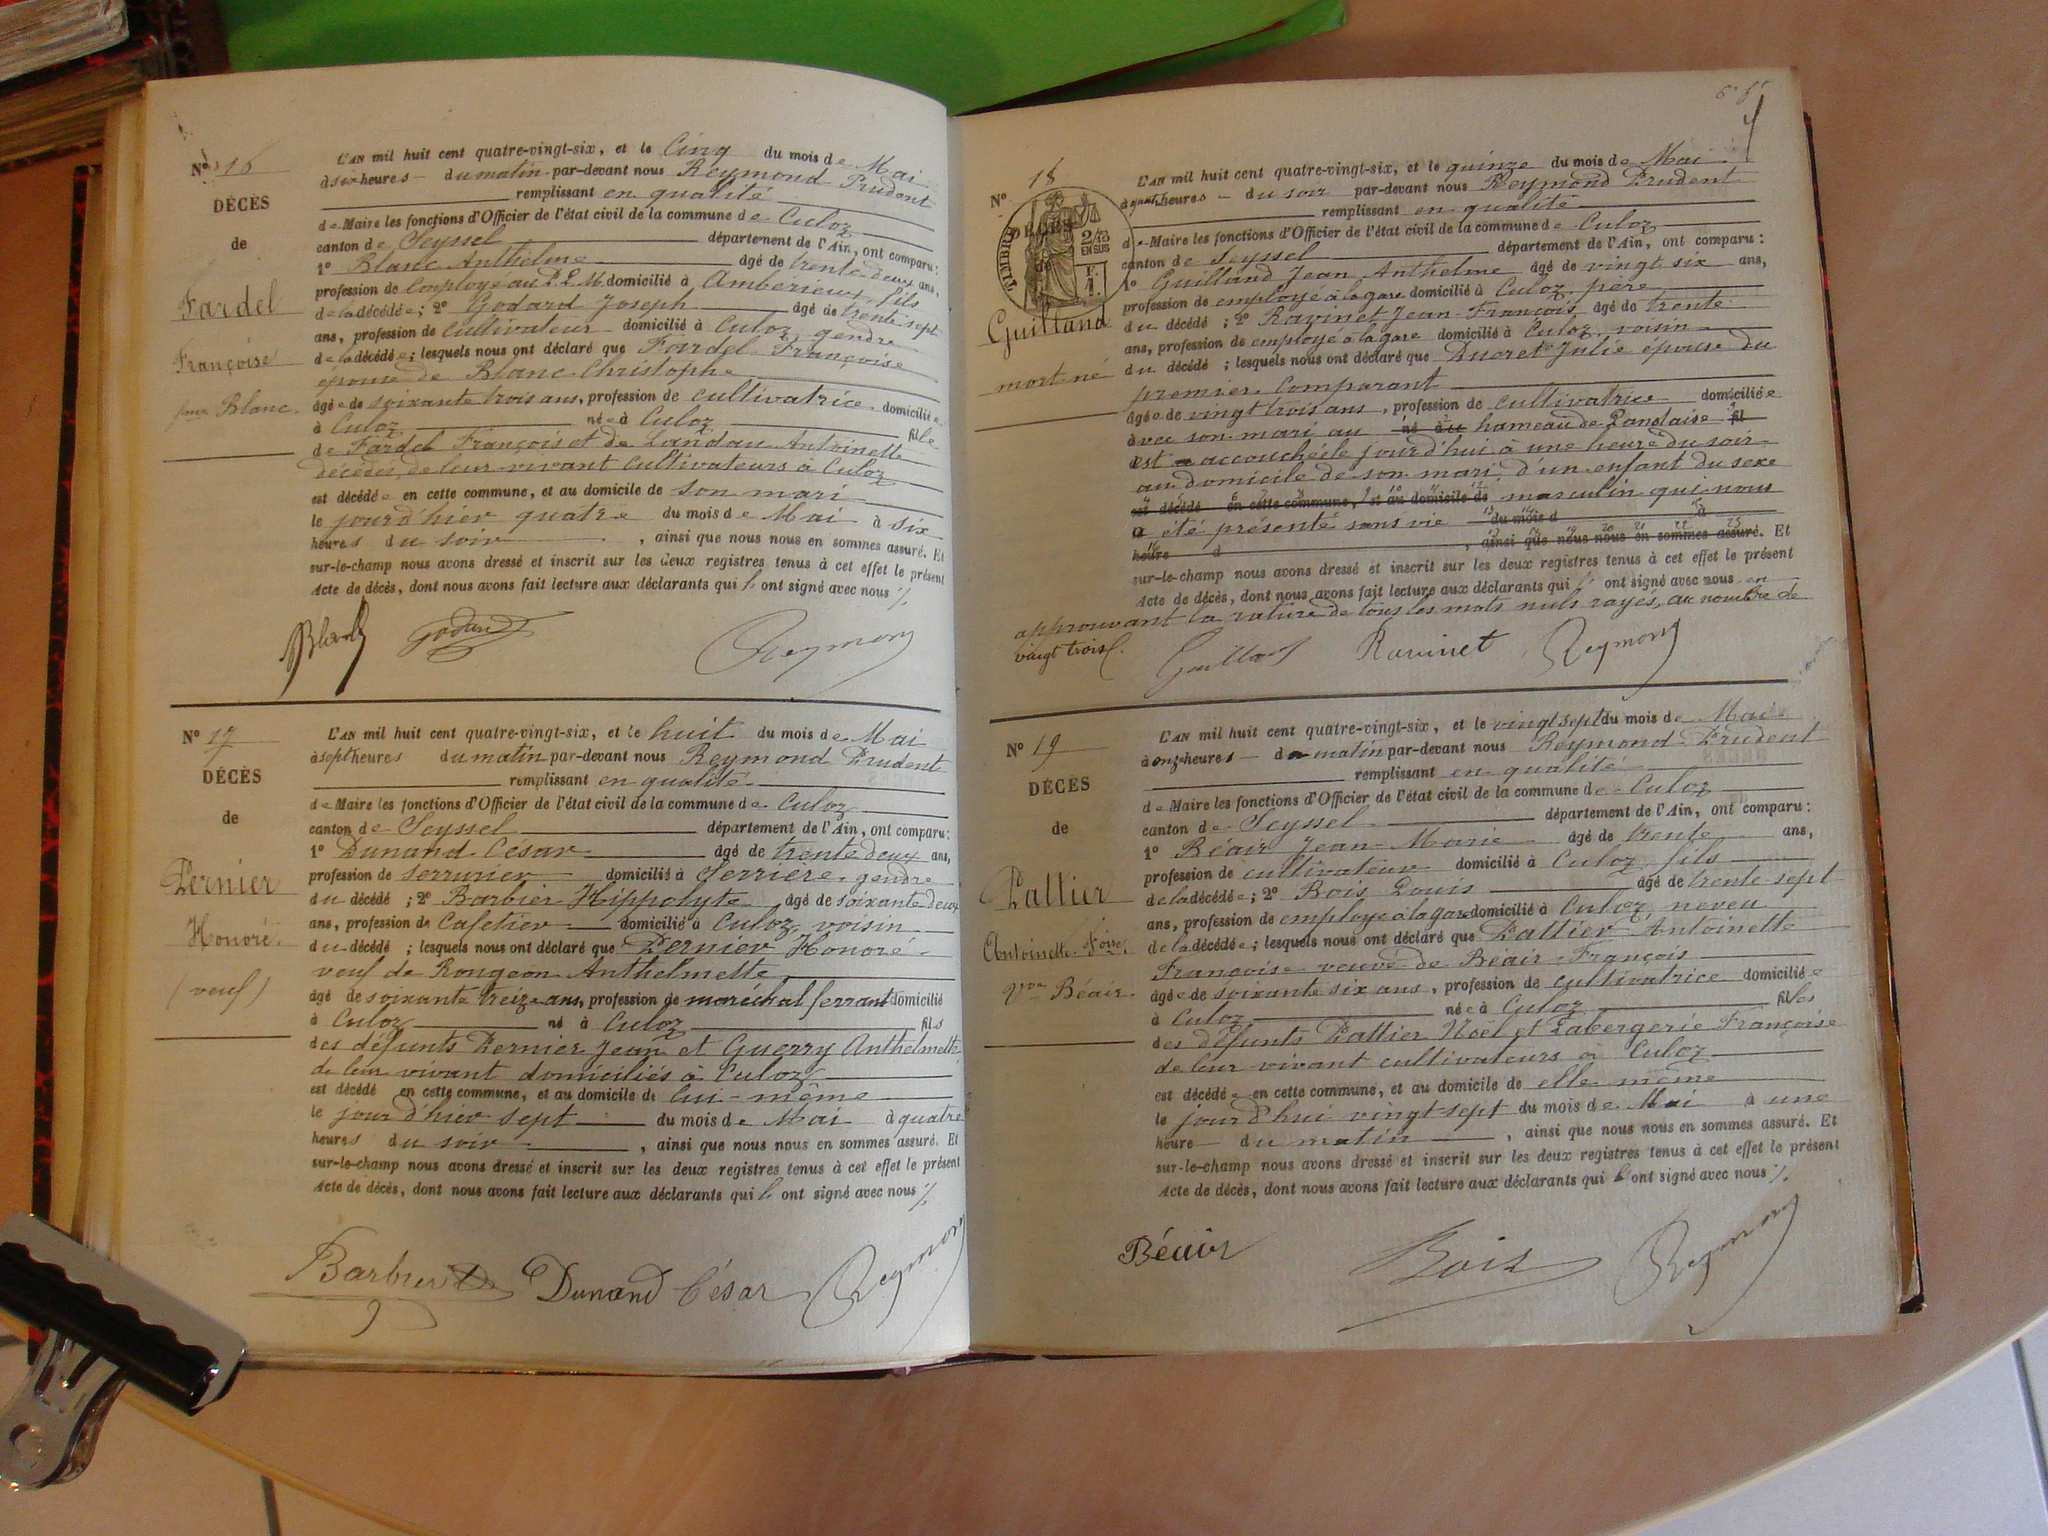 N° 16
DÉCÈS
de
Fardel
Françoise
fme Blanc.
L'AN mil huit cent quatre-vingt-six, et le Cinq du mois de Mai
à six heures du matin par-devant nous Reymond Prudent
remplissant en qualité
de Maire les fonctions d'Officier de l'état civil de la commune de Culoz
canton de Seyssel département de l'Ain, ont comparu:
1° Blanc Anthelme âgé de trente deux ans,
profession de Employé au P.L.M. domicilié à Ambérieux, fils
de la décédée; 2° Godard Joseph âgé de trente sept
ans, profession de Cultivateur domicilié à Culoz, gendre
de la décédée; lesquels nous ont déclaré que Fardel Françoise
épouse de Blanc Christophe
âgée de soixante trois ans, profession de cultivatrice domiciliée
à Culoz née à Culoz fille
de Fardel François et de Landau Antoinette
décédés, de leur vivant cultivateurs à Culoz
est décédée en cette commune, et au domicile de son mari
le jour d'hier quatre du mois de Mai à six
heures du soir, ainsi que nous nous en sommes assuré. Et
sur-le-champ nous avons dressé et inscrit sur les deux registres tenus à cet effet le présent
Acte de décès, dont nous avons fait lecture aux déclarants qui l' ont signé avec nous
Godard
Reymond
N° 17
DÉCÈS
de
Pernier
Honoré.
(veuf)
L'AN mil huit cent quatre-vingt-six, et le huit du mois de Mai
à sept heures du matin par-devant nous Reymond Prudent
remplissant en qualité
de Maire les fonctions d'Officier de l'état civil de la commune de Culoz
canton de Seyssel département de l'Ain, ont comparu:
1° Dunand César âgé de trente deux ans,
profession de serrurier domicilié à Serriere, gendre
du décédé; 2° Barbier Hippolyte âgé de soixante deux
ans, profession de Cafetier domicilié à Culoz, voisin
du décédé; lesquels nous ont déclaré que Pernier Honoré
veuf de Rongeon Anthelmette
âgé de soixante treize ans, profession de maréchal ferrant domicilié
à Culoz né à Culoz fils
des défunts Pernier Jean et Guerry Anthelmette
de leur vivant domiciliés à Culoz
est décédé en cette commune, et au domicile de lui-même
le jour d'hier sept du mois de Mai à quatre
heures du soir, ainsi que nous nous en sommes assuré. Et
sur-le-champ nous avons dressé et inscrit sur les deux registres tenus à cet effet le présent
Acte de décès, dont nous avons fait lecture aux déclarants qui l' ont signé avec nous
Barbier Dunand César Reymond
N° 18
TIMBRE
2/10
EN SUS
DÉCÈS
de
Guilland
mort né
L'AN mil huit cent quatre-vingt-six, et le quinze du mois de Mai
à quatre heures du soir par-devant nous Reymond Prudent
remplissant en qualité
de Maire les fonctions d'Officier de l'état civil de la commune de Culoz
canton de Seyssel département de l'Ain, ont comparu:
1° Guilland Jean Anthelme âgé de vingt six ans,
profession de employé à la gare domicilié à Culoz, père
du décédé; 2° Ravinet Jean François âgé de trente
ans, profession de employé à la gare domicilié à Culoz, voisin
du décédé; lesquels nous ont déclaré que Ducret Julie épouse du
premier comparant
âgée de vingt trois ans, profession de cultivatrice domiciliée
avec son mari au né à hameau de Landaise fil
est accouchée le jourd'hui à une heure du soir
au domicile de son mari, d'un enfant du sexe
est décédé en cette commune, et au domicile de masculin qui nous
a été présenté sans vie du mois d à
heure d, ainsi que nous nous en sommes assuré. Et
sur-le-champ nous avons dressé et inscrit sur les deux registres tenus à cet effet le présent
Acte de décès, dont nous avons fait lecture aux déclarants qui l' ont signé avec nous en
approuvant la rature de tous les mots nuls rayés, au nombre de
vingt trois.
Guilland Ravinet Reymond
N° 19
DÉCÈS
de
Pattier
Antoinette Foise.
Vve Béair.
L'AN mil huit cent quatre-vingt-six, et le vingt sept du mois de Mai
à onze heures du matin par-devant nous Reymond Prudent
remplissant en qualité
de Maire les fonctions d'Officier de l'état civil de la commune de Culoz
canton de Seyssel département de l'Ain, ont comparu:
1° Béair Jean Marie âgé de trente ans,
profession de cultivateur domicilié à Culoz, fils
de la décédée; 2° Bois Louis âgé de trente sept
ans, profession de employé à la gare domicilié à Culoz, neveu
de la décédée; lesquels nous ont déclaré que Pattier Antoinette
Françoise veuve de Béair François
âgée de soixante six ans, profession de cultivatrice domiciliée
à Culoz née à Culoz filles
des défunts Pattier Noël et Labergerie Françoise
de leur vivant cultivateurs à Culoz
est décédée en cette commune, et au domicile de elle même
le jourd'hui vingt sept du mois de Mai à une
heure du matin, ainsi que nous nous en sommes assuré. Et
sur-le-champ nous avons dressé et inscrit sur les deux registres tenus à cet effet le présent
Acte de décès, dont nous avons fait lecture aux déclarants qui l' ont signé avec nous
Béair Bois Reymond